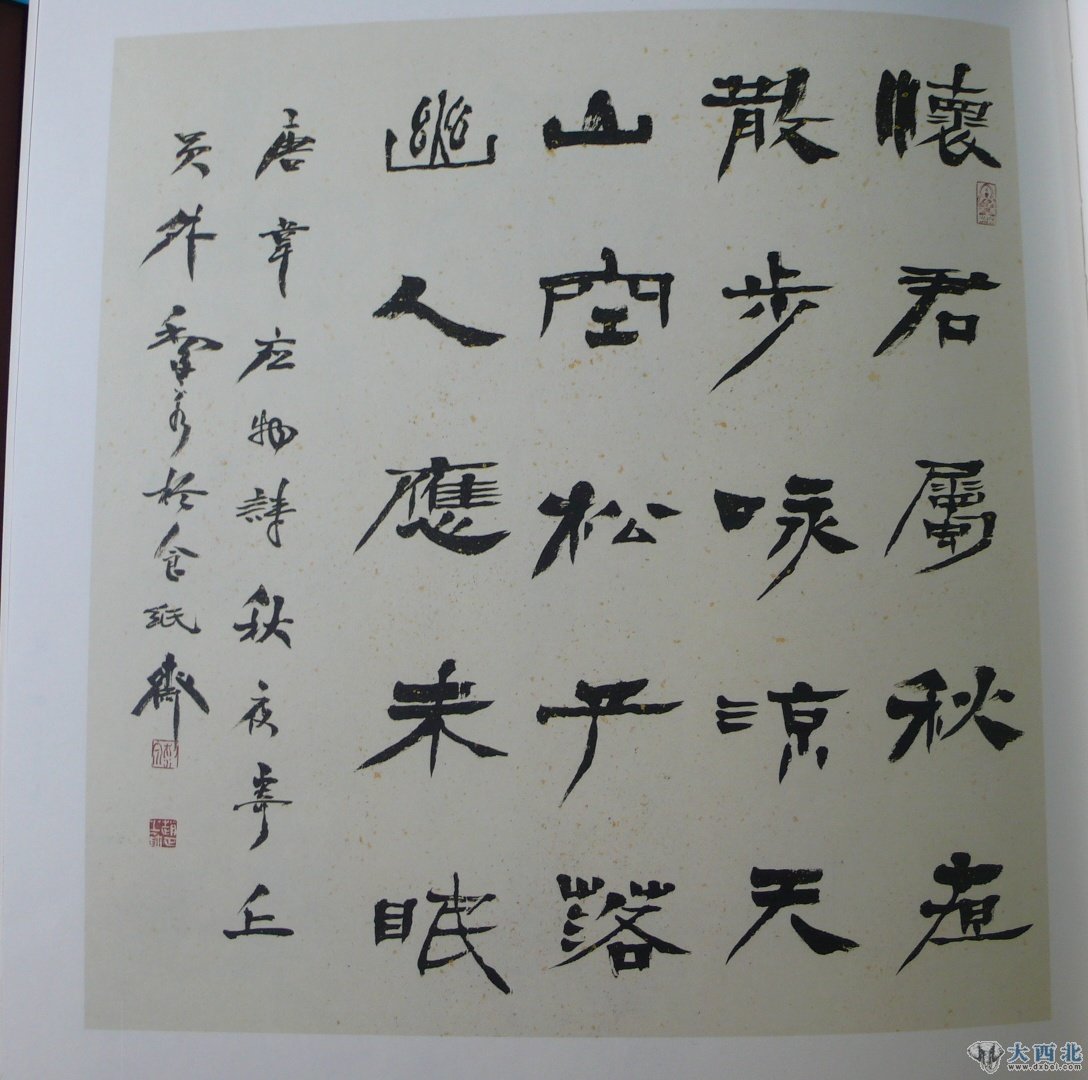 懷君屬秋亱
散步咏涼天
山空松子落
幽人應未眠
唐韋应物詩秋夜寄丘
员外於食紙齋
大西北
www.dxbei.com